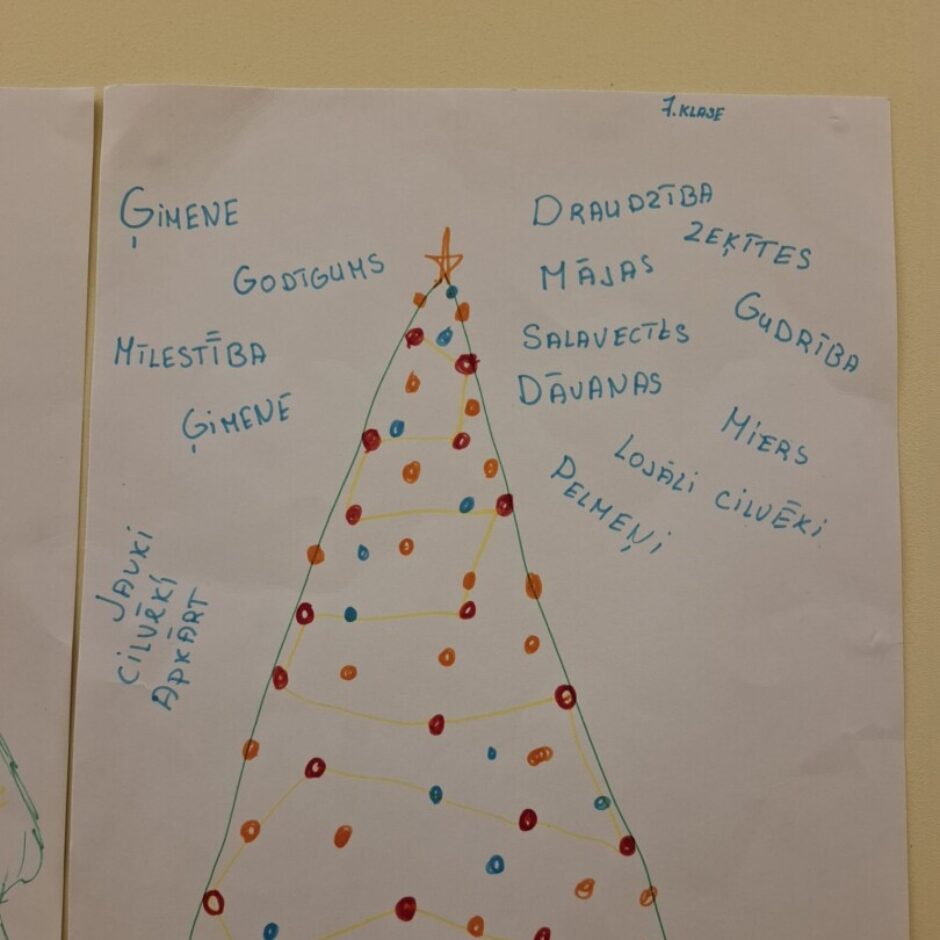 7. KLASE
ĢIMENE
GODĪGUMS
MĪLESTĪBA
ĢIMENE
JAUKI
CILVĒKI
APKĀRT
DRAUDZĪBA
ZEĶĪTES
MĀJAS
GUDRĪBA
SALAVECTĒS
DĀVANAS
MIERS
LOJĀLI CILVĒKI
PELMEŅI